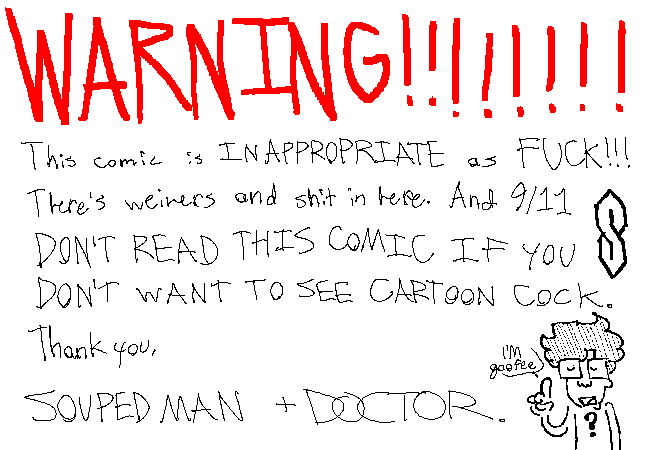 WARNING!!!!!!!!
This comic is INAPPROPRIATE as FUCK!!!
There's weiners and shit in here. And 9/11
DON'T READ THIS COMIC IF YOU
DON'T WANT TO SEE CARTOON COCK.
Thank you,
I'M
goofee
SOUPED MAN + DOCTOR.
?